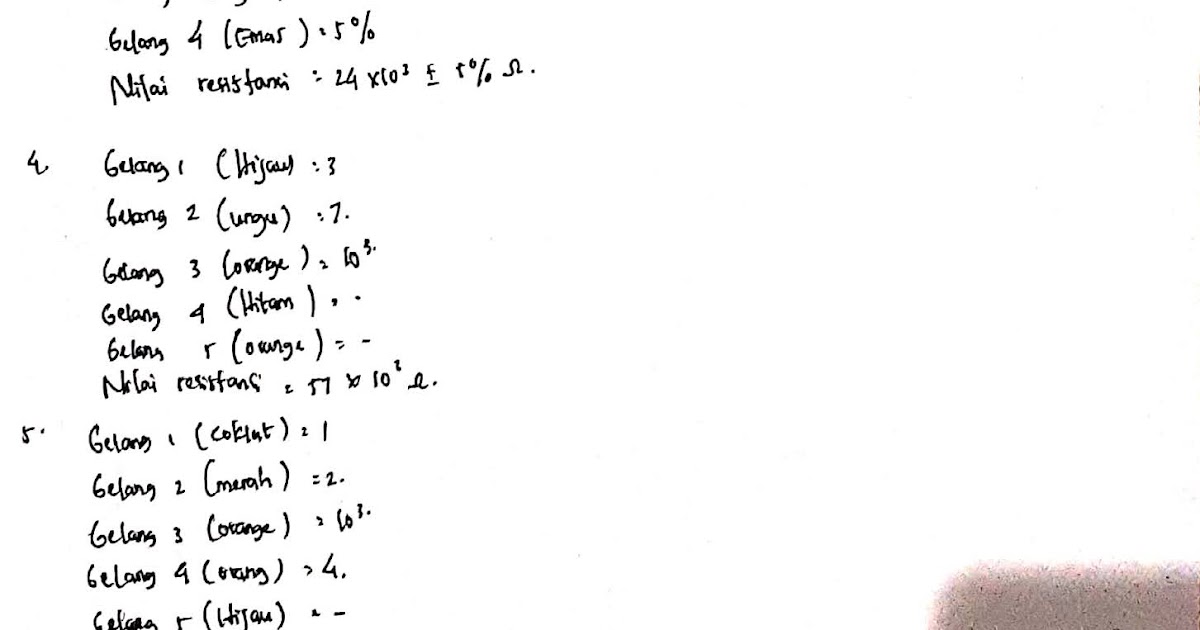 Gelang 4 (Emas) = 5%
Nilai resistansi = 24 x10³ ± 5% Ω.
4. Gelang 1 (Hijau) : 3
Gelang 2 (ungu) : 7.
Gelang 3 (orange) = 10³.
Gelang 4 (Hitam) = -
Gelang 5 (orange) = -
Nilai resistansi = 57 x 10³ Ω.
5. Gelang 1 (coklat) = 1
Gelang 2 (merah) = 2.
Gelang 3 (orange) = 10³.
Gelang 4 (orang) = 4.
Gelang 5 (Hijau) = -